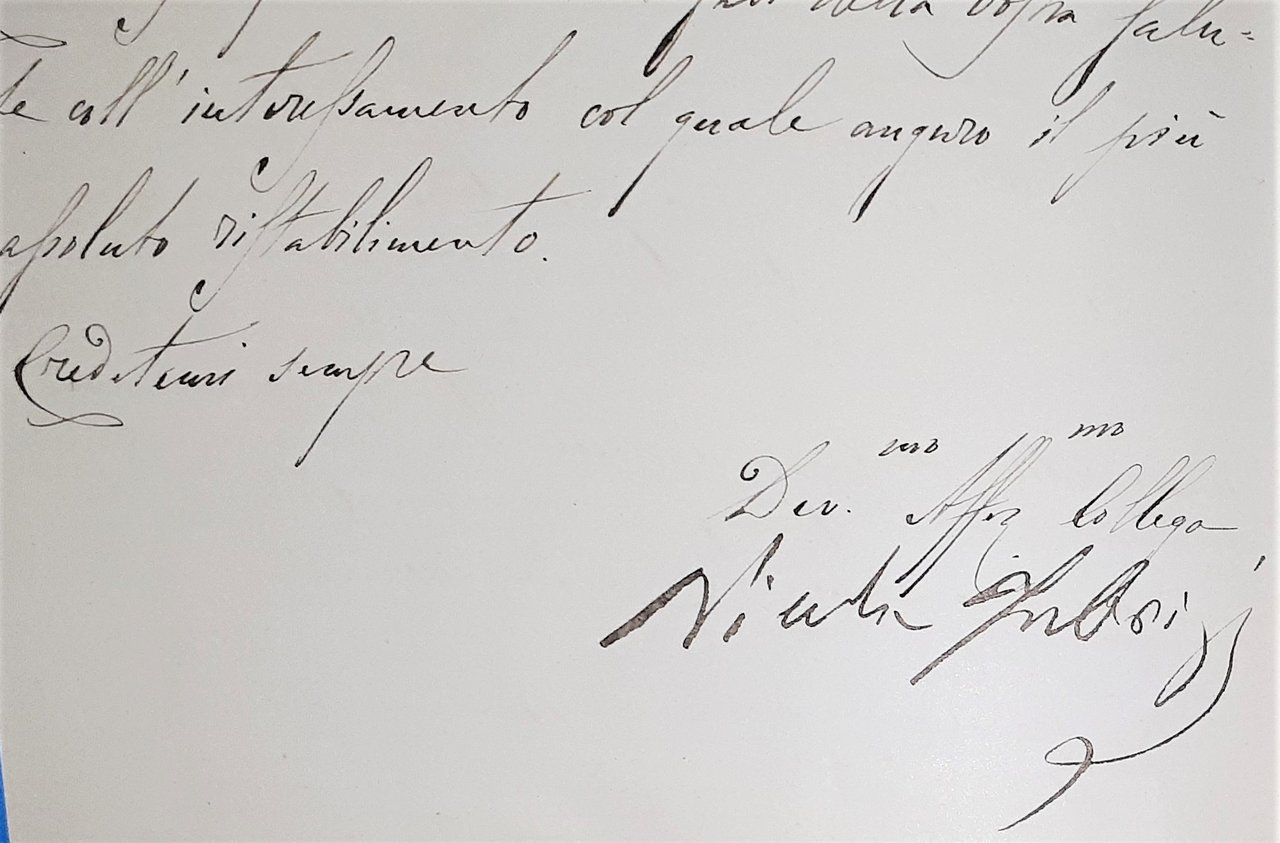 della vostra salu=
te coll'interessamento col quale auguro il più
assoluto ristabilimento.
Credetemi sempre
Dev.mo Affez.mo Collega
Nicola Fabrizj